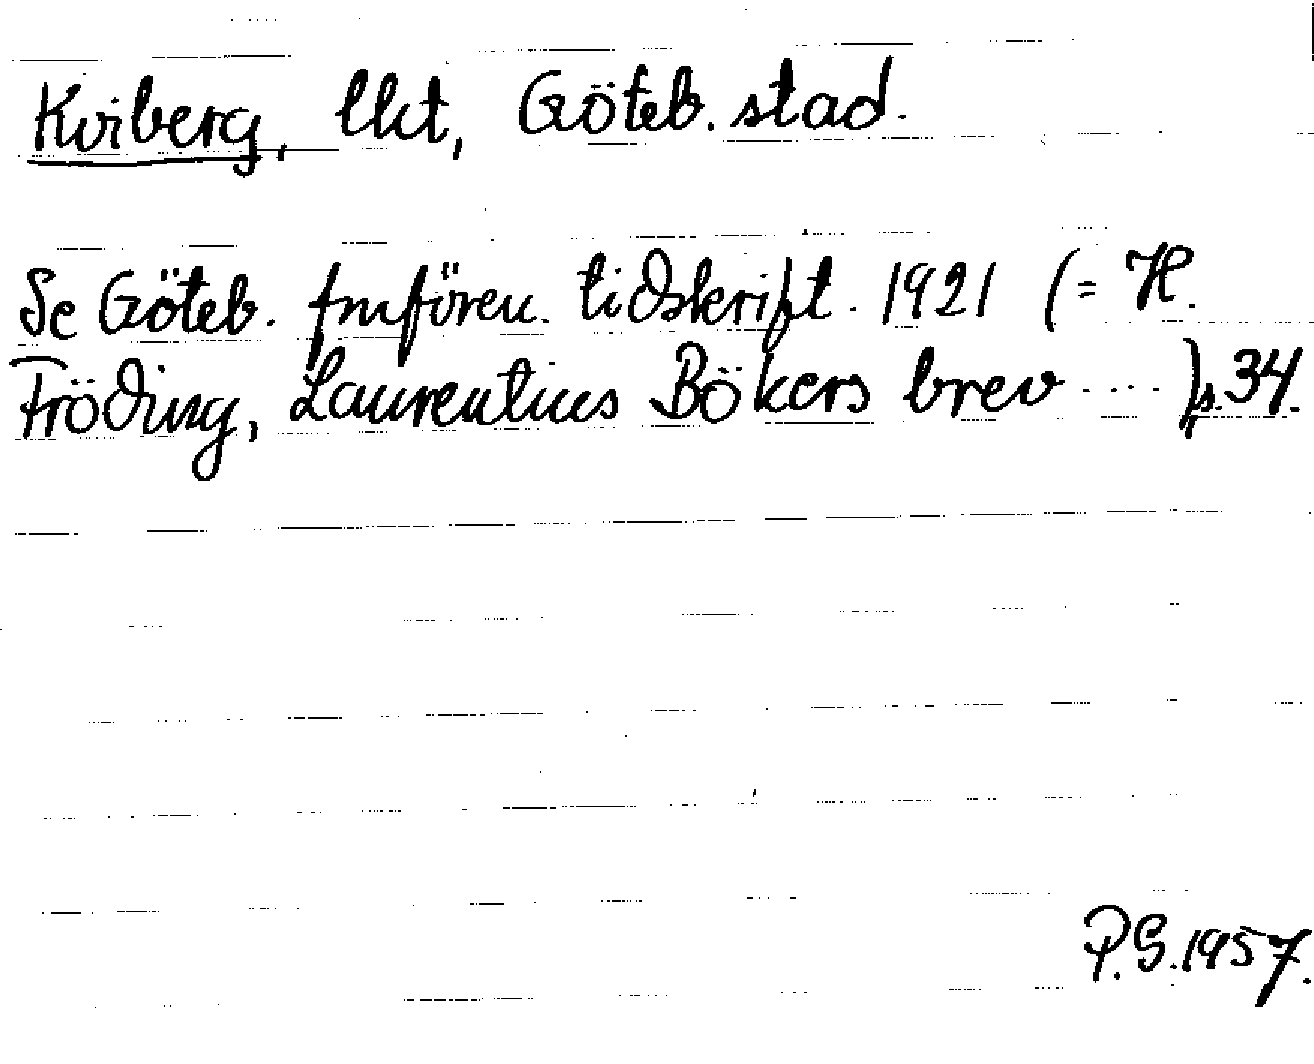 Kviberg, lkt, Göteb. stad.
Se Göteb. fmfören. tidskrift. 1921 (= H.
Fröding, Laurentius Bökers brev ....) s. 34.
P.S. 1957.